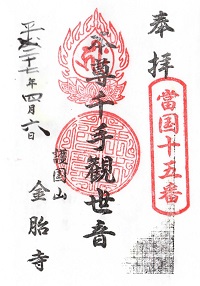 奉拝
當国十五番
本尊千手観世音
護国山
金胎寺
平成二十七年四月六日